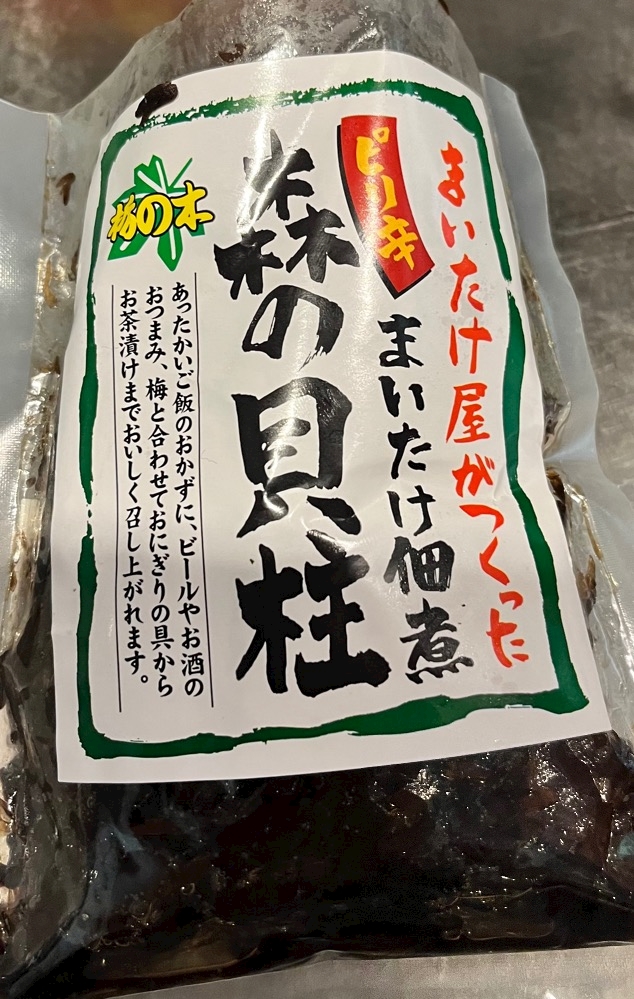 まいたけ屋がつくった
ピリ辛
まいたけ佃煮
森の貝柱
栃の木
あったかいご飯のおかずに、ビールやお酒の
おつまみ、梅と合わせておにぎりの具から
お茶漬けまでおいしく召し上がれます。